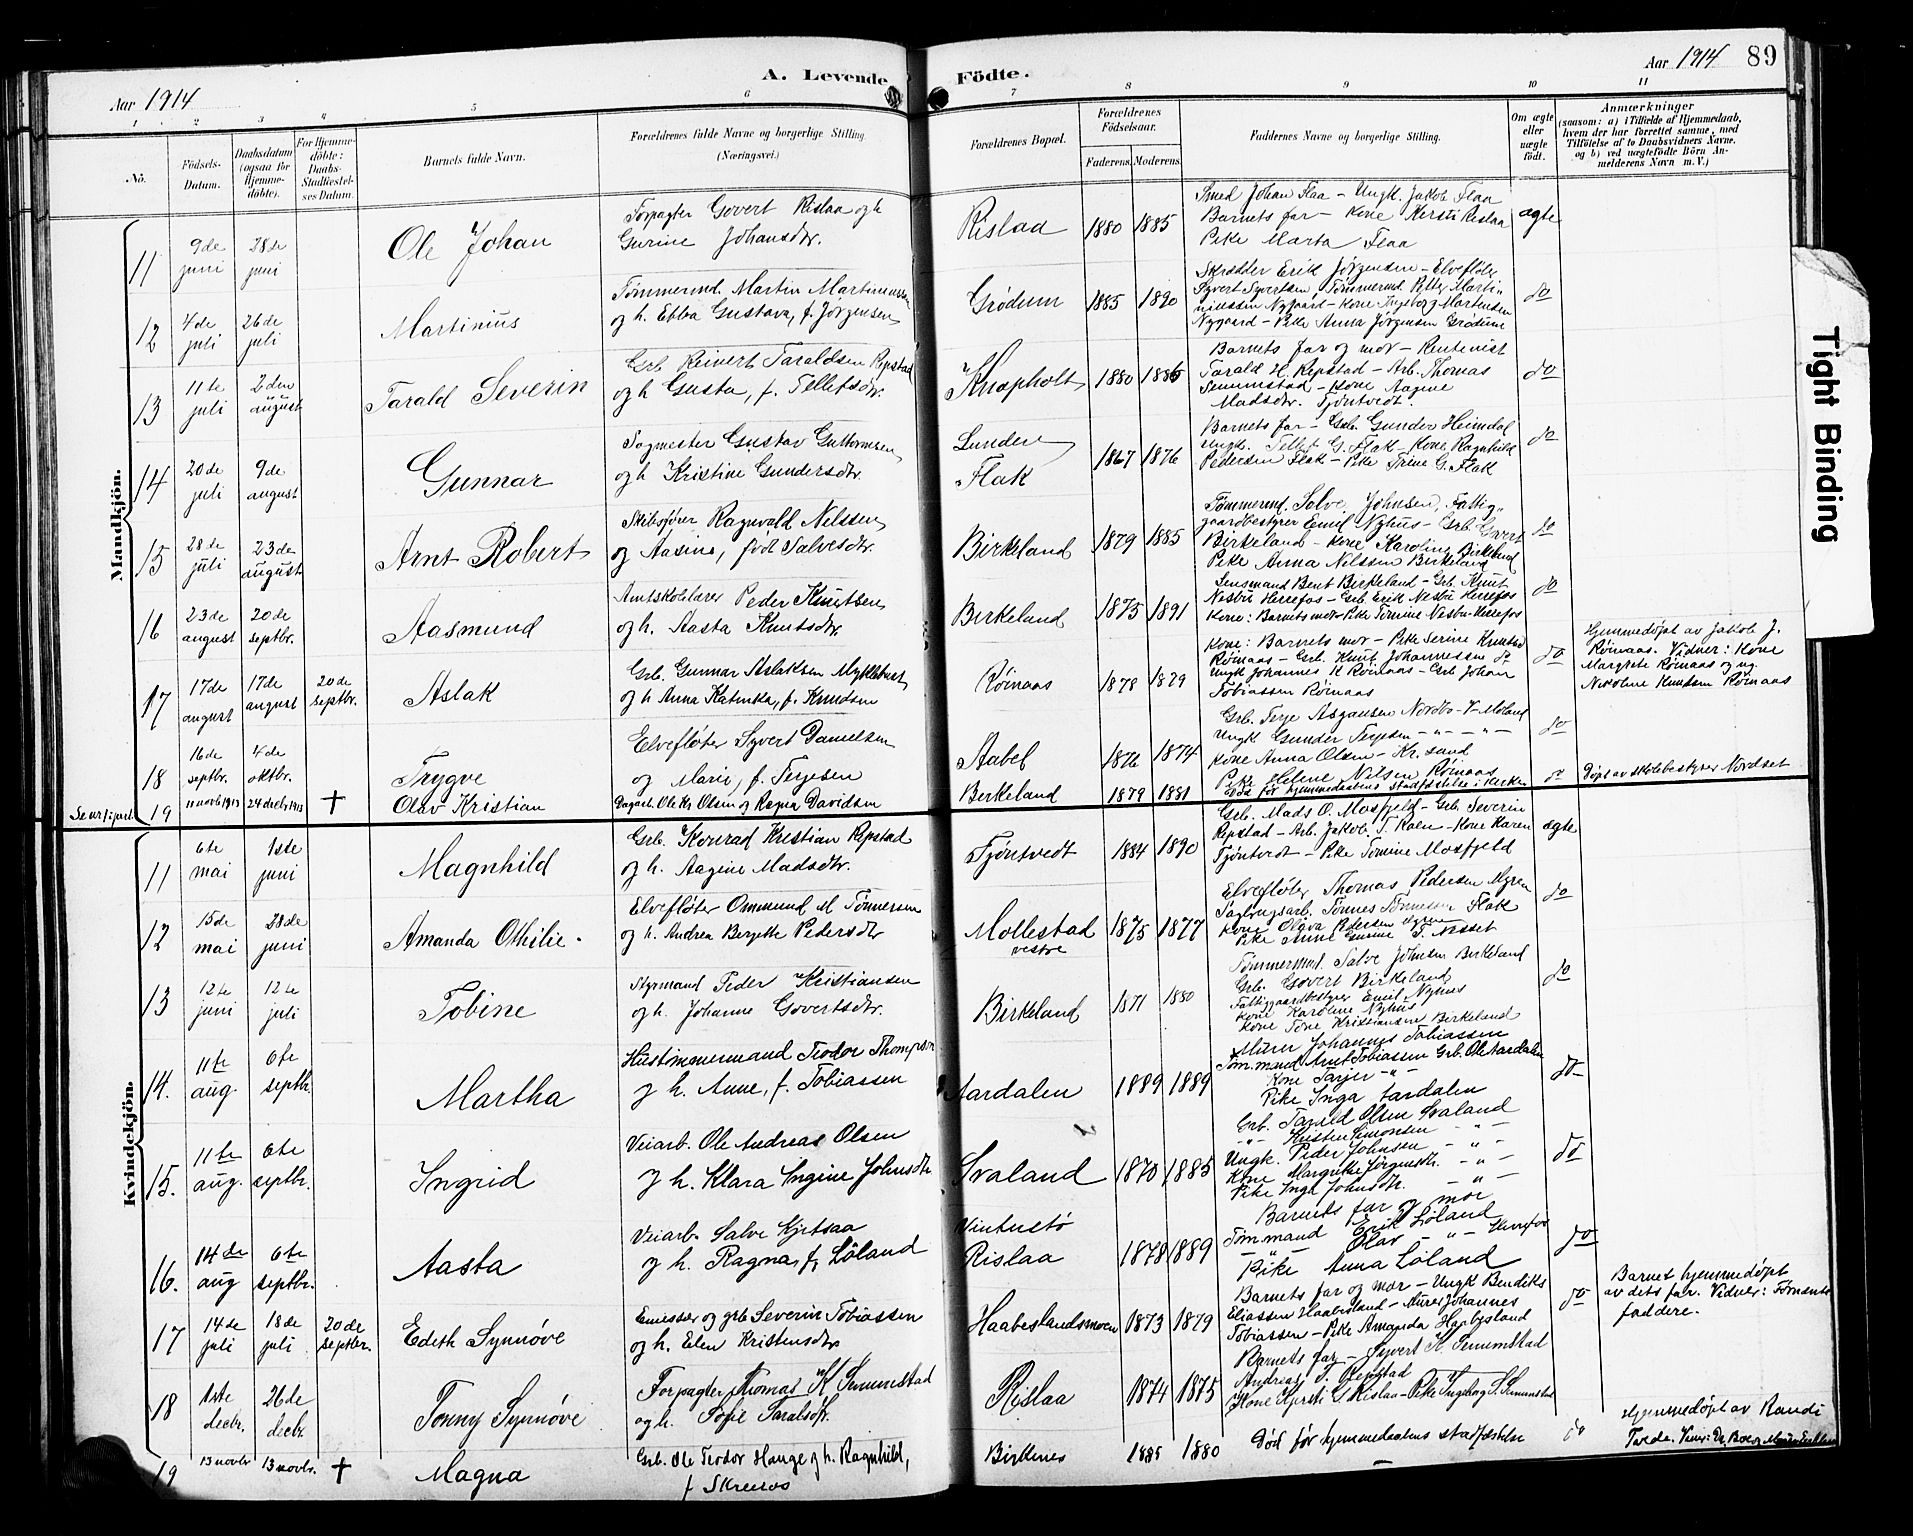 Aar 1914
A. Levende
Födte.
Aar 1914 89
1 2 3 4 5 6 7 8 9 10 11
No.
Födsels-Datum.
Daabsdatum (ogsaa for Hjemme-döbte).
For Hjemme-döbte: Daabs-Stadfæstel-ses Datum.
Barnets fulde Navn.
Forældrenes fulde Navne og borgerlige Stilling. (Næringsvei.)
Forældrenes Bopæl.
Forældrenes Födselsaar.
Faderens. Moderens.
Faddernes Navne og borgerlige Stilling.
Om ægte eller uægte födt.
Anmærkninger
(saasom: a) i Tilfælde af Hjemmedaab, hvem der har forrettet samme, med Tilföielse af to Daabsvidners Navne, og b) ved uægtefödte Börn An-melderens Navn m. V.)
Tight Binding
Mandkjön.
11 9de juni 28de juni Ole Johan
Forpagter Govert Rislaa og h
Gurine Johansdtr.
Rislaa 1880 1885
Smed Johan Flaa - Ungk. Jakob Flaa
Barnets far - Kone Kersti Rislaa
Pike Marta Flaa
ægte
12 4de juli 26de juli Martinius
Tømmermd. Martin Martinussen
og h. Ebba Gustava, f. Jörgensen
Grødum 1885 1890
Skrædder Erik Jörgensen - Elvefløter
Syvert Syvertsen, Tømmermd. Petter Marti-
niussen Nygaard - Kone Ingeborg Martinsen
Nygaard - Pike Anna Jörgensen Grødum
do
13 11te juli 2den august Tarald Severin
Grb. Reinert Taraldsen Repstad
og h Gusta, f. Telletsdtr.
Knapholt 1880 1886
Barnets far og mor - Rentenist
Tarald H. Repstad - Arb. Thomas
Senumstad - Kone Aagine
Madsdtr. Tjöntvedt.
do
14 20de juli 9de august Gunnar
Sagmester Gustav Guttormsen
og h Kristine Gundersdtr.
Lunden
Flak
1867 1876
Barnets far - Grb. Gunder Heimdal
Ungk. Tellef G. Flak - Kone Ragnhild
Pedersen Flak - Pike Trine G. Flak
do
15 28de juli 23de august Arnt Robert
Skibsfører Ragnvald Nelssen
og Aasine, födt Salvesdtr.
Birkeland 1879 1885
Tømmermd. Salve Johnsen, Fattig-
gaardbestyrer Emil Nyhus - Grb. Govert
Birkeland - Kone Karoline Birkeland
Pike Anna Nilssen Birkeland
do
16 23de august 20de septbr. Aasmund
Amtskolelærer Peder Knutsen
og h. Aasta Knutsdtr.
Birkeland 1875 1891
Lensmand Bent Birkeland - Grb. Knut
Nesbu Herrefos - Grb. Erik Nesbu Herrefos
Kone: Barnets mor - Pike Tomine Nesbu Herrefos
do
17 17de august 17de august 20de septbr. Aslak
Grb. Gunnar Aslaksen Myklebust
og h Anna Katinka, f. Knudsen
Röinaas 1878 1879
Kone: Barnets mor - Pike Serine Knutsd
Röinaas - Grb. Knut Johannessen do
Ungk Johannes K Röinaas - Grb Johan
Tobiassen Röinaas
do
Hjemmedøpt av Jakob J.
Röinaas. Vidner: Kone
Margrete Röinaas og ug.
Nikoline Knutsen Röinaas
18 16de septbr. 4de oktbr. Trygve
Elvefløter Syvert Danielsen
og Marie, f. Terjesen
Aabel 1876 1874
Grb. Terje Asgansen Nordbo - V-Moland
Ungk Gunder Terjesen - " - " -
Kone Anna Olsen - Kr.sand
Pike Helene Nilsen Röinaas
do
19 11 novb 1913 24 decbr 1913 † Olav Kristian
Dagarb. Ole Kr. Olsen og Regna Davidsen
Birkeland 1879 1881
Död før hjemmedaabens stadfæstelse i Kirken
do
Döpt av skolebestyrer Nordset
Kvindekjön.
11 6te mai 1ste juni Magnhild
Grb. Konrad Kristian Repstad
og h. Aagine Madsdtr.
Tjöntvedt 1884 1890
Grb. Mads O. Mosfjeld - Grb. Severin
Repstad - Arb. Jakob T. Kalen - Kone Karen
Tjöntvedt - Pike Tomine Mosfjeld
ægte
12 15de mai 28de juni Amanda Othilie.
Elvefløter Ommund M Tønnesen
og h. Andrea Bergitte Pedersdtr
Mollestad
vestre
1875 1877
Elvefløter Thomas Pedersen Myren
Sagbrugsarb. Tønnes Tønnesen Flak
Kone Oliva Pedersen Myren
Pike Anne Gurine T. Nesset
do
13 12te juni 12te juli Tobine
Styrmand Peder Kristiansen
og h. Johanne Govertsdtr.
Birkeland 1871 1880
Tømmermd. Salve Johnsen Birkeland
Grb. Govert Birkeland
Fattiggaardbestyrer Emil Nyhus
Kone Karoline Nyhus
Kone Tone Kristiansen Birkeland
do
14. 11te aug. 6te septbr. Martha
Hustømmermand Teodor Thompson
og h. Anne, f. Tobiassen
Aardalen 1889 1889
Murer Johannes Tobiassen
Tøm.mand Arnt Tobiassen Grb. Ole Aardalen
Kone Tarjer - " -
Pike Inga Aardalen
do
15. 11te aug. 6te septbr. Ingrid
Veiarb. Ole Andreas Olsen
og h. Klara Ingine Johnsdtr
Svaland 1870 1885
Grb. Tarald Olsen Svaland
- " - Kristen Simonsen - " -
Ungk. Peder Johnsen - " -
Kone Margrethe Jörgensdtr. - " -
Pike Inga Johnsdtr. - " -
do
16. 14de aug 6te septbr. Aasta
Veiarb. Salve Kjetsaa
og h. Ragna, f. Löland
Rislaa
1878 1889
Barnets far og mor
Tøm.mand Erik Löland
- " - Olav - " - Herrefos
Pike Anna Löland
do
17 14de juli 18de juli 20de septbr. Edith Synnöve
Emissær og grb Severin Tobiassen
og h. Elen Kristensdtr
Haabeslandsmoen 1873 1879
Barnets far og mor - Ungk Bendiks
Eliassen Haabesland - Murer Johannes
Tobiassen - Pike Amanda Haabesland
do
Barnet hjemmedøpt
av dets far. Vidner: Förnævnte
faddere.
18 1ste decbr. 26de decbr Tonny Synnöve
Forpagter Thomas K Senumstad
og h. Sofie Taralsdtr.
Rislaa 1874 1875
Barnets far - Syvert K. Senumstad
Andreas T. Repstad
Kone Kjersti G Rislaa - Pike Ingborg S. Senumstad
19 13 novbr 13 novbr. † Magna
Grb. Ole Teodor Hauge og h. Ragnhild,
f Skreros
Birkenes 1885 1880
Död før hjemmedaabens stadfæstelse
do
Hjemmedøpt av Randi